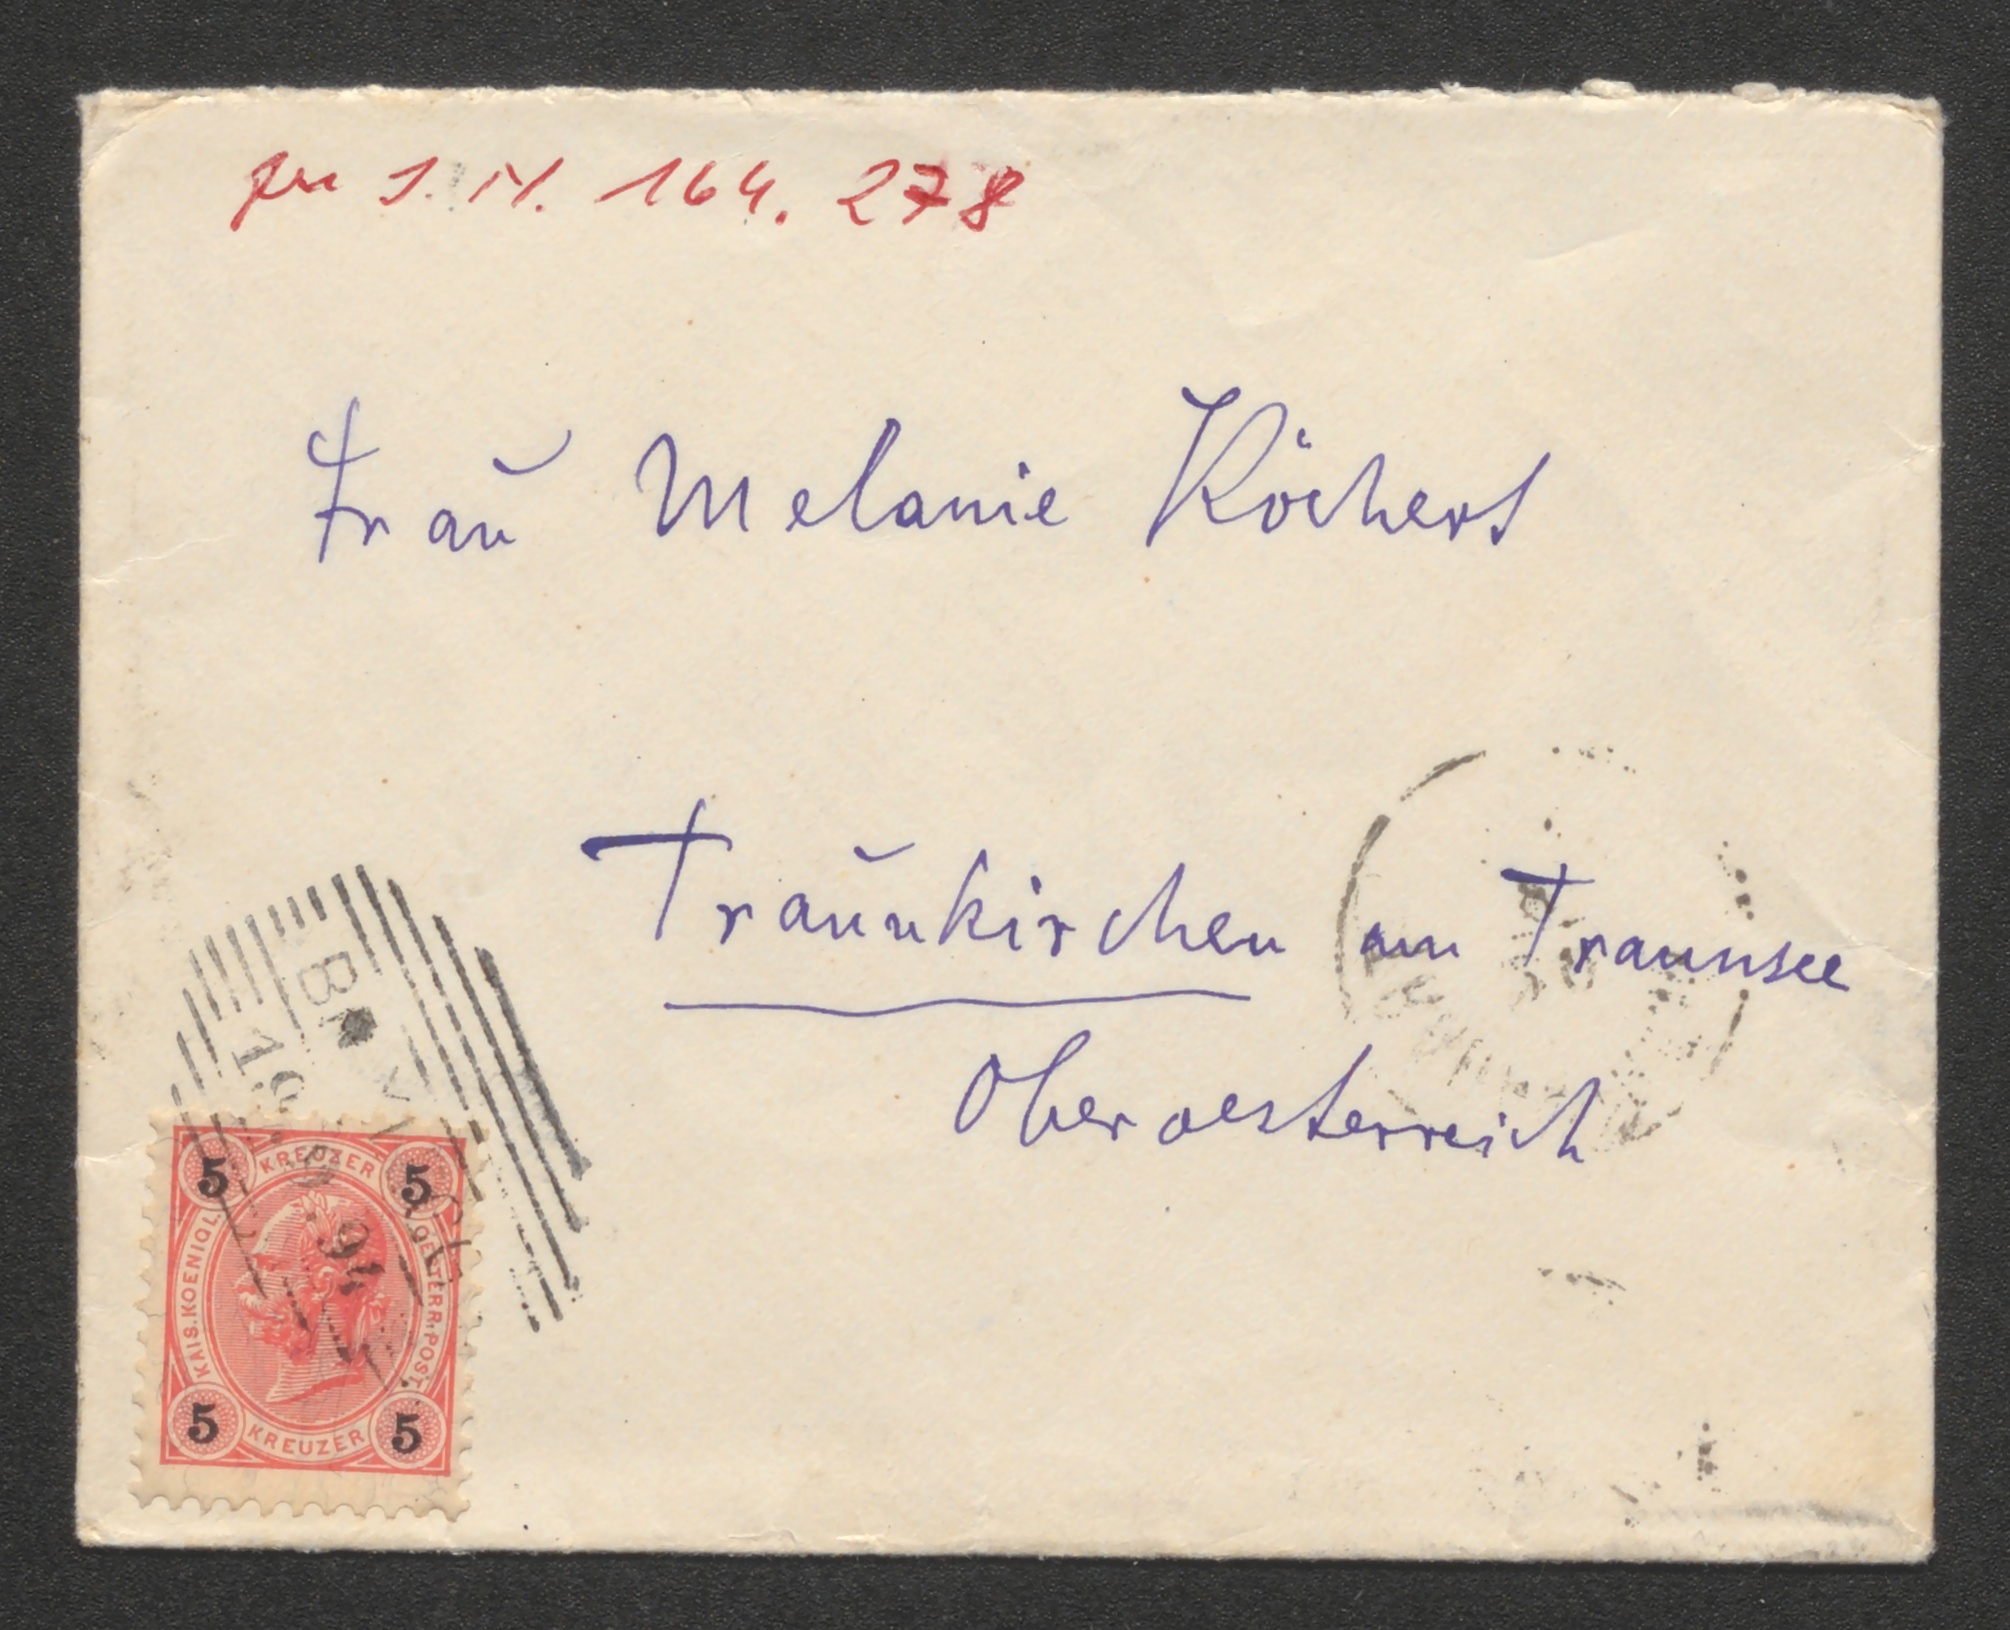 zu I.N. 164.278
Frau Melanie Köchert
Traunkirchen am Traunsee
Oberoesterreich
5 KREUZER 5
KAIS. KOENIGL. OESTERR. POST.
94
5 KREUZER 5